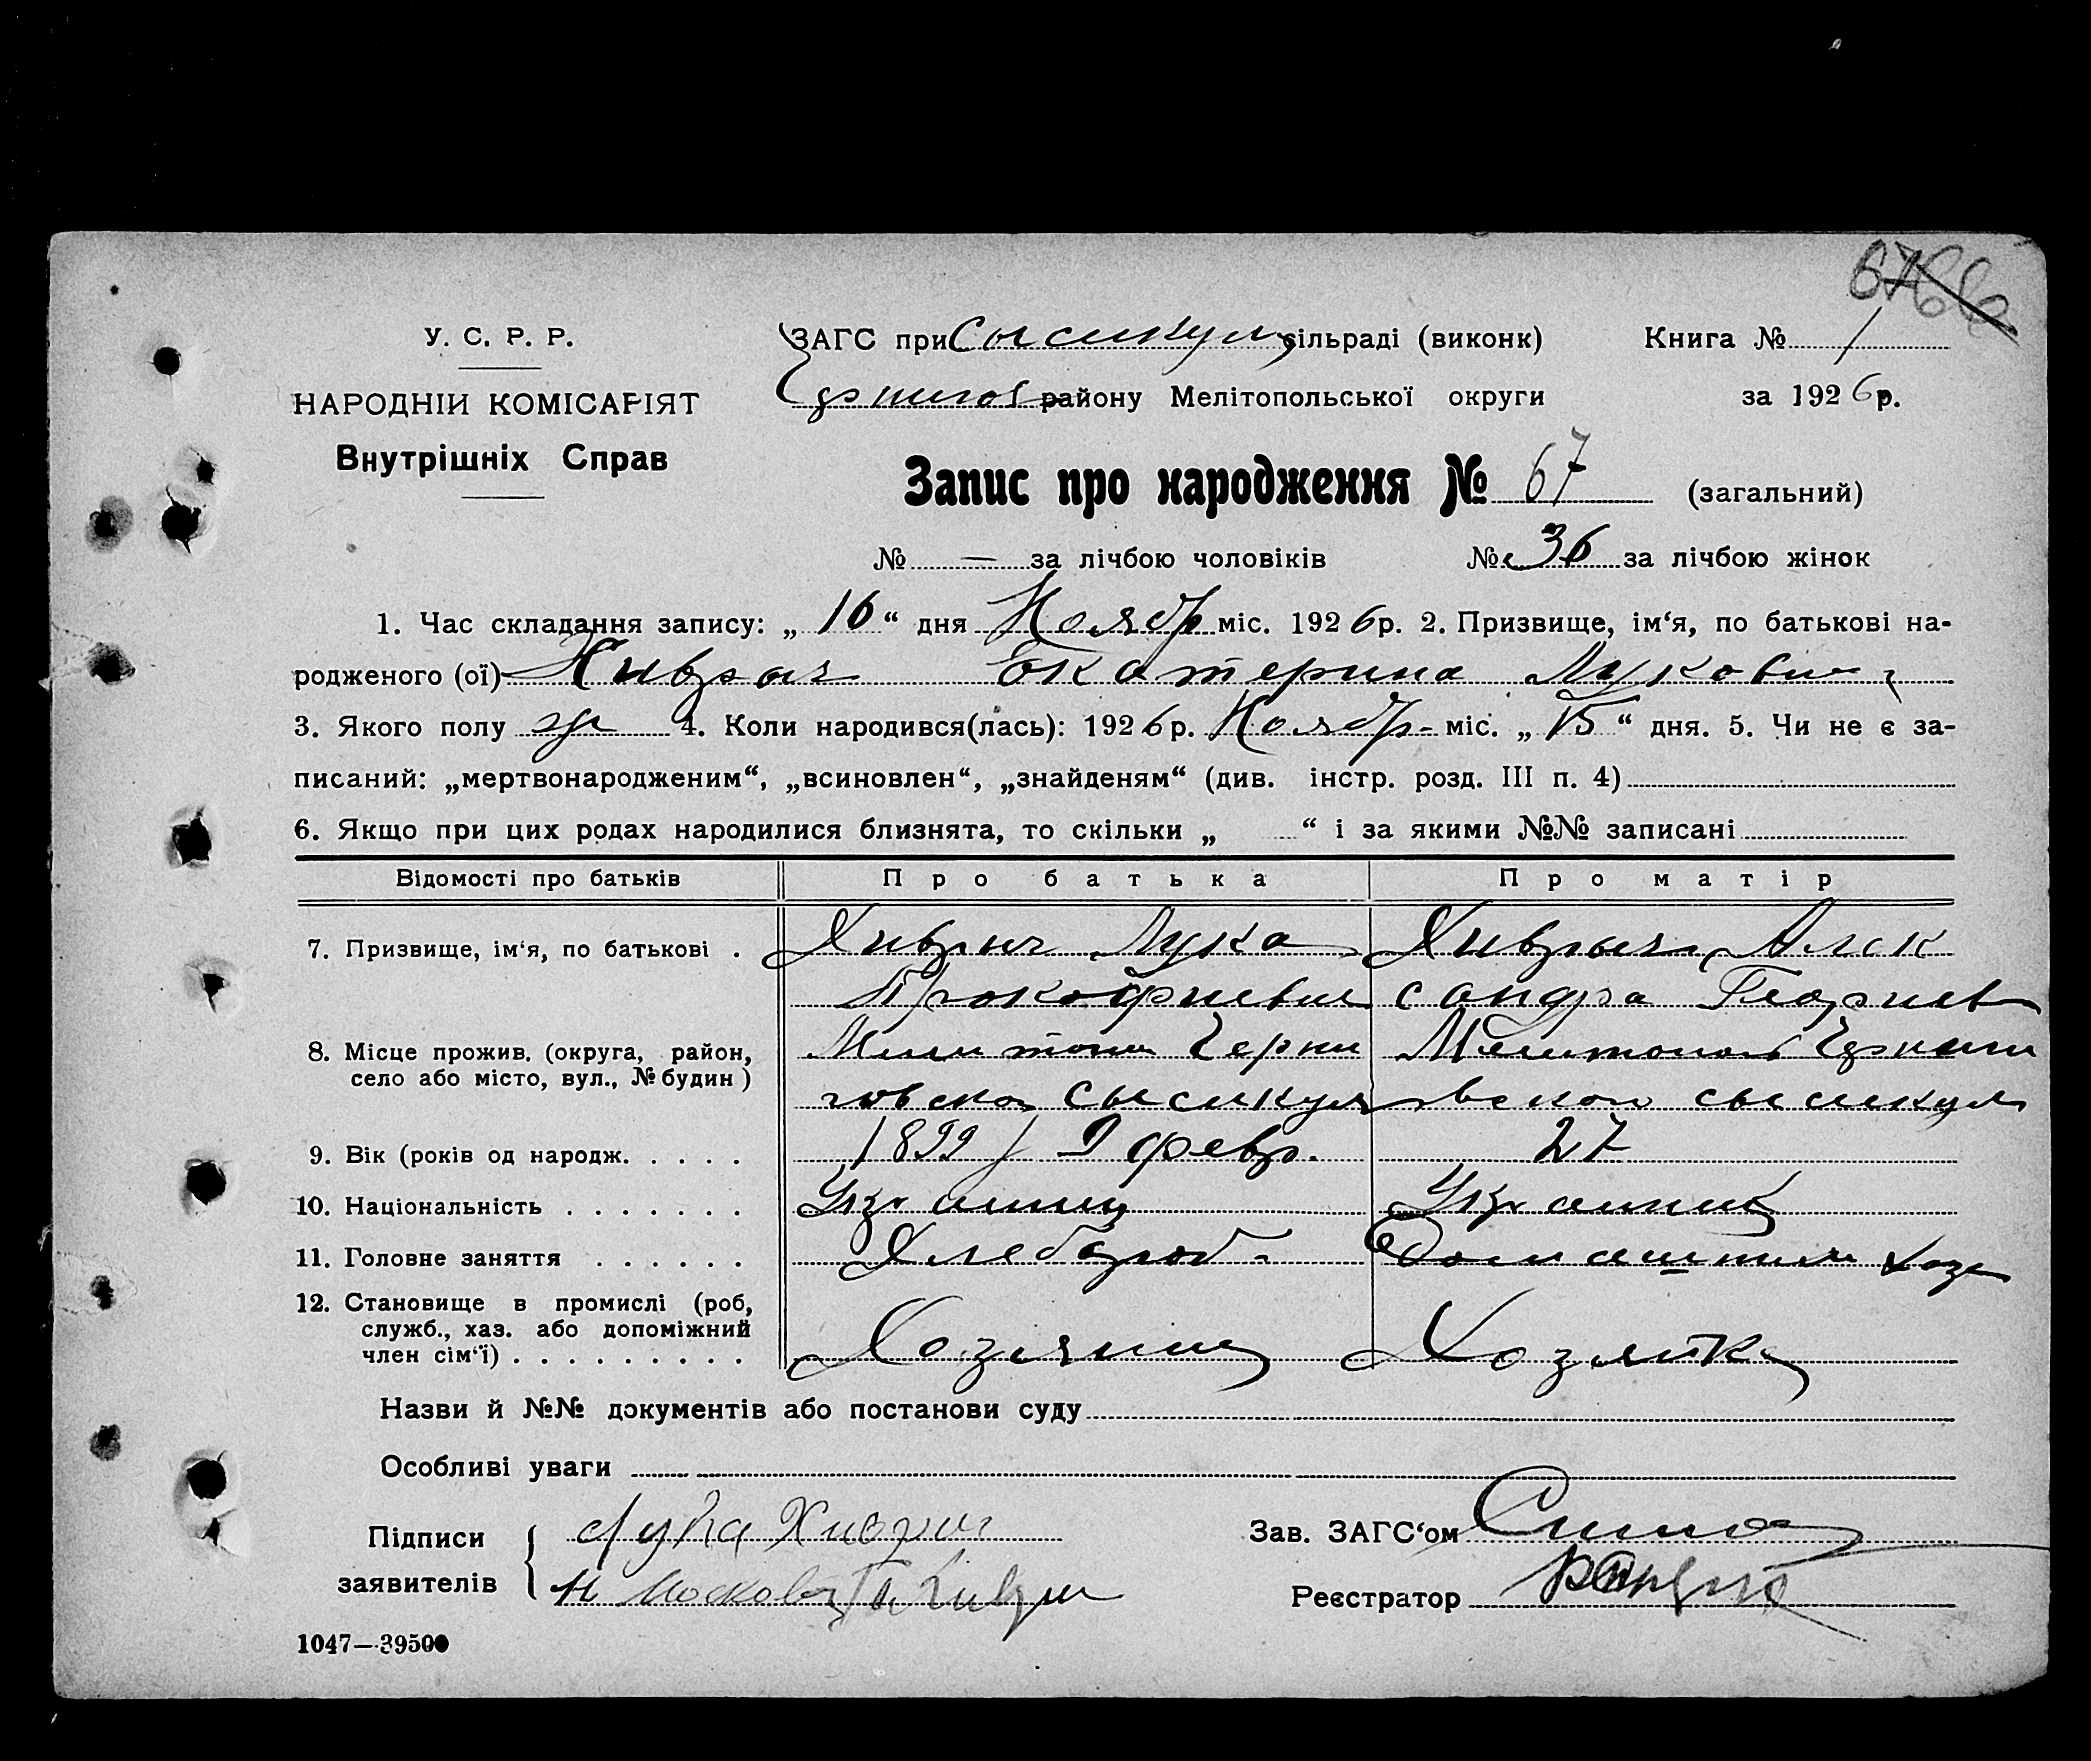 67
У. С. Р. Р.
ЗАГС при Сысикул сільраді (виконк)
Книга № 1
НАРОДНІЙ КОМІСАРІЯТ
району Мелітопольської округи
за 1926р.
Внутрішніх Справ
Запис про народження № 67 (загальний)
№ — за лічбою чоловіків № 36 за лічбою жінок
1. Час складання запису: „ 16 “ дня Ноябр міс. 1926р. 2. Призвище, ім‘я, по батькові на-
родженого (ої) Хиврыч Екатерина
3. Якого полу ж 4. Коли народився(лась): 1926р. Ноябр- міс. „ 15 “ дня. 5. Чи не є за-
писаний: „мертвонародженим“, „всиновлен“, „знайденям“ (див. інстр. розд. III п. 4)
6. Якщо при цих родах народилися близнята, то скільки „ “ і за якими №№ записані
Відомості про батьків
Про батька
Про матір
7. Призвище, ім‘я, по батькові .
Хиврыч Лука
Хиврыч Алек
Прокофиевич
сандра Георгиев
8. Місце прожив. (округа, район,
село або місто, вул., № будин )
Черни
Мелитополь
говской Сысикул
сысикул
9. Вік (років од народж. . . . .
1899 / 9 февр.
27
10. Національність . . . . . . .
Украинец
Украинк
11. Головне заняття . . . . . .
Хлебороб-
Домашним хозя
12. Становище в промислі (роб,
служб., хаз. або допоміжний
член сім‘ї) . . . . . . . . .
Хозяин
Хозяйка
Назви й №№ документів або постанови суду
Особливі уваги
Підписи
заявителів
Лука Хиврич
Зав. ЗАГС‘ом
Реєстратор
1047—39500